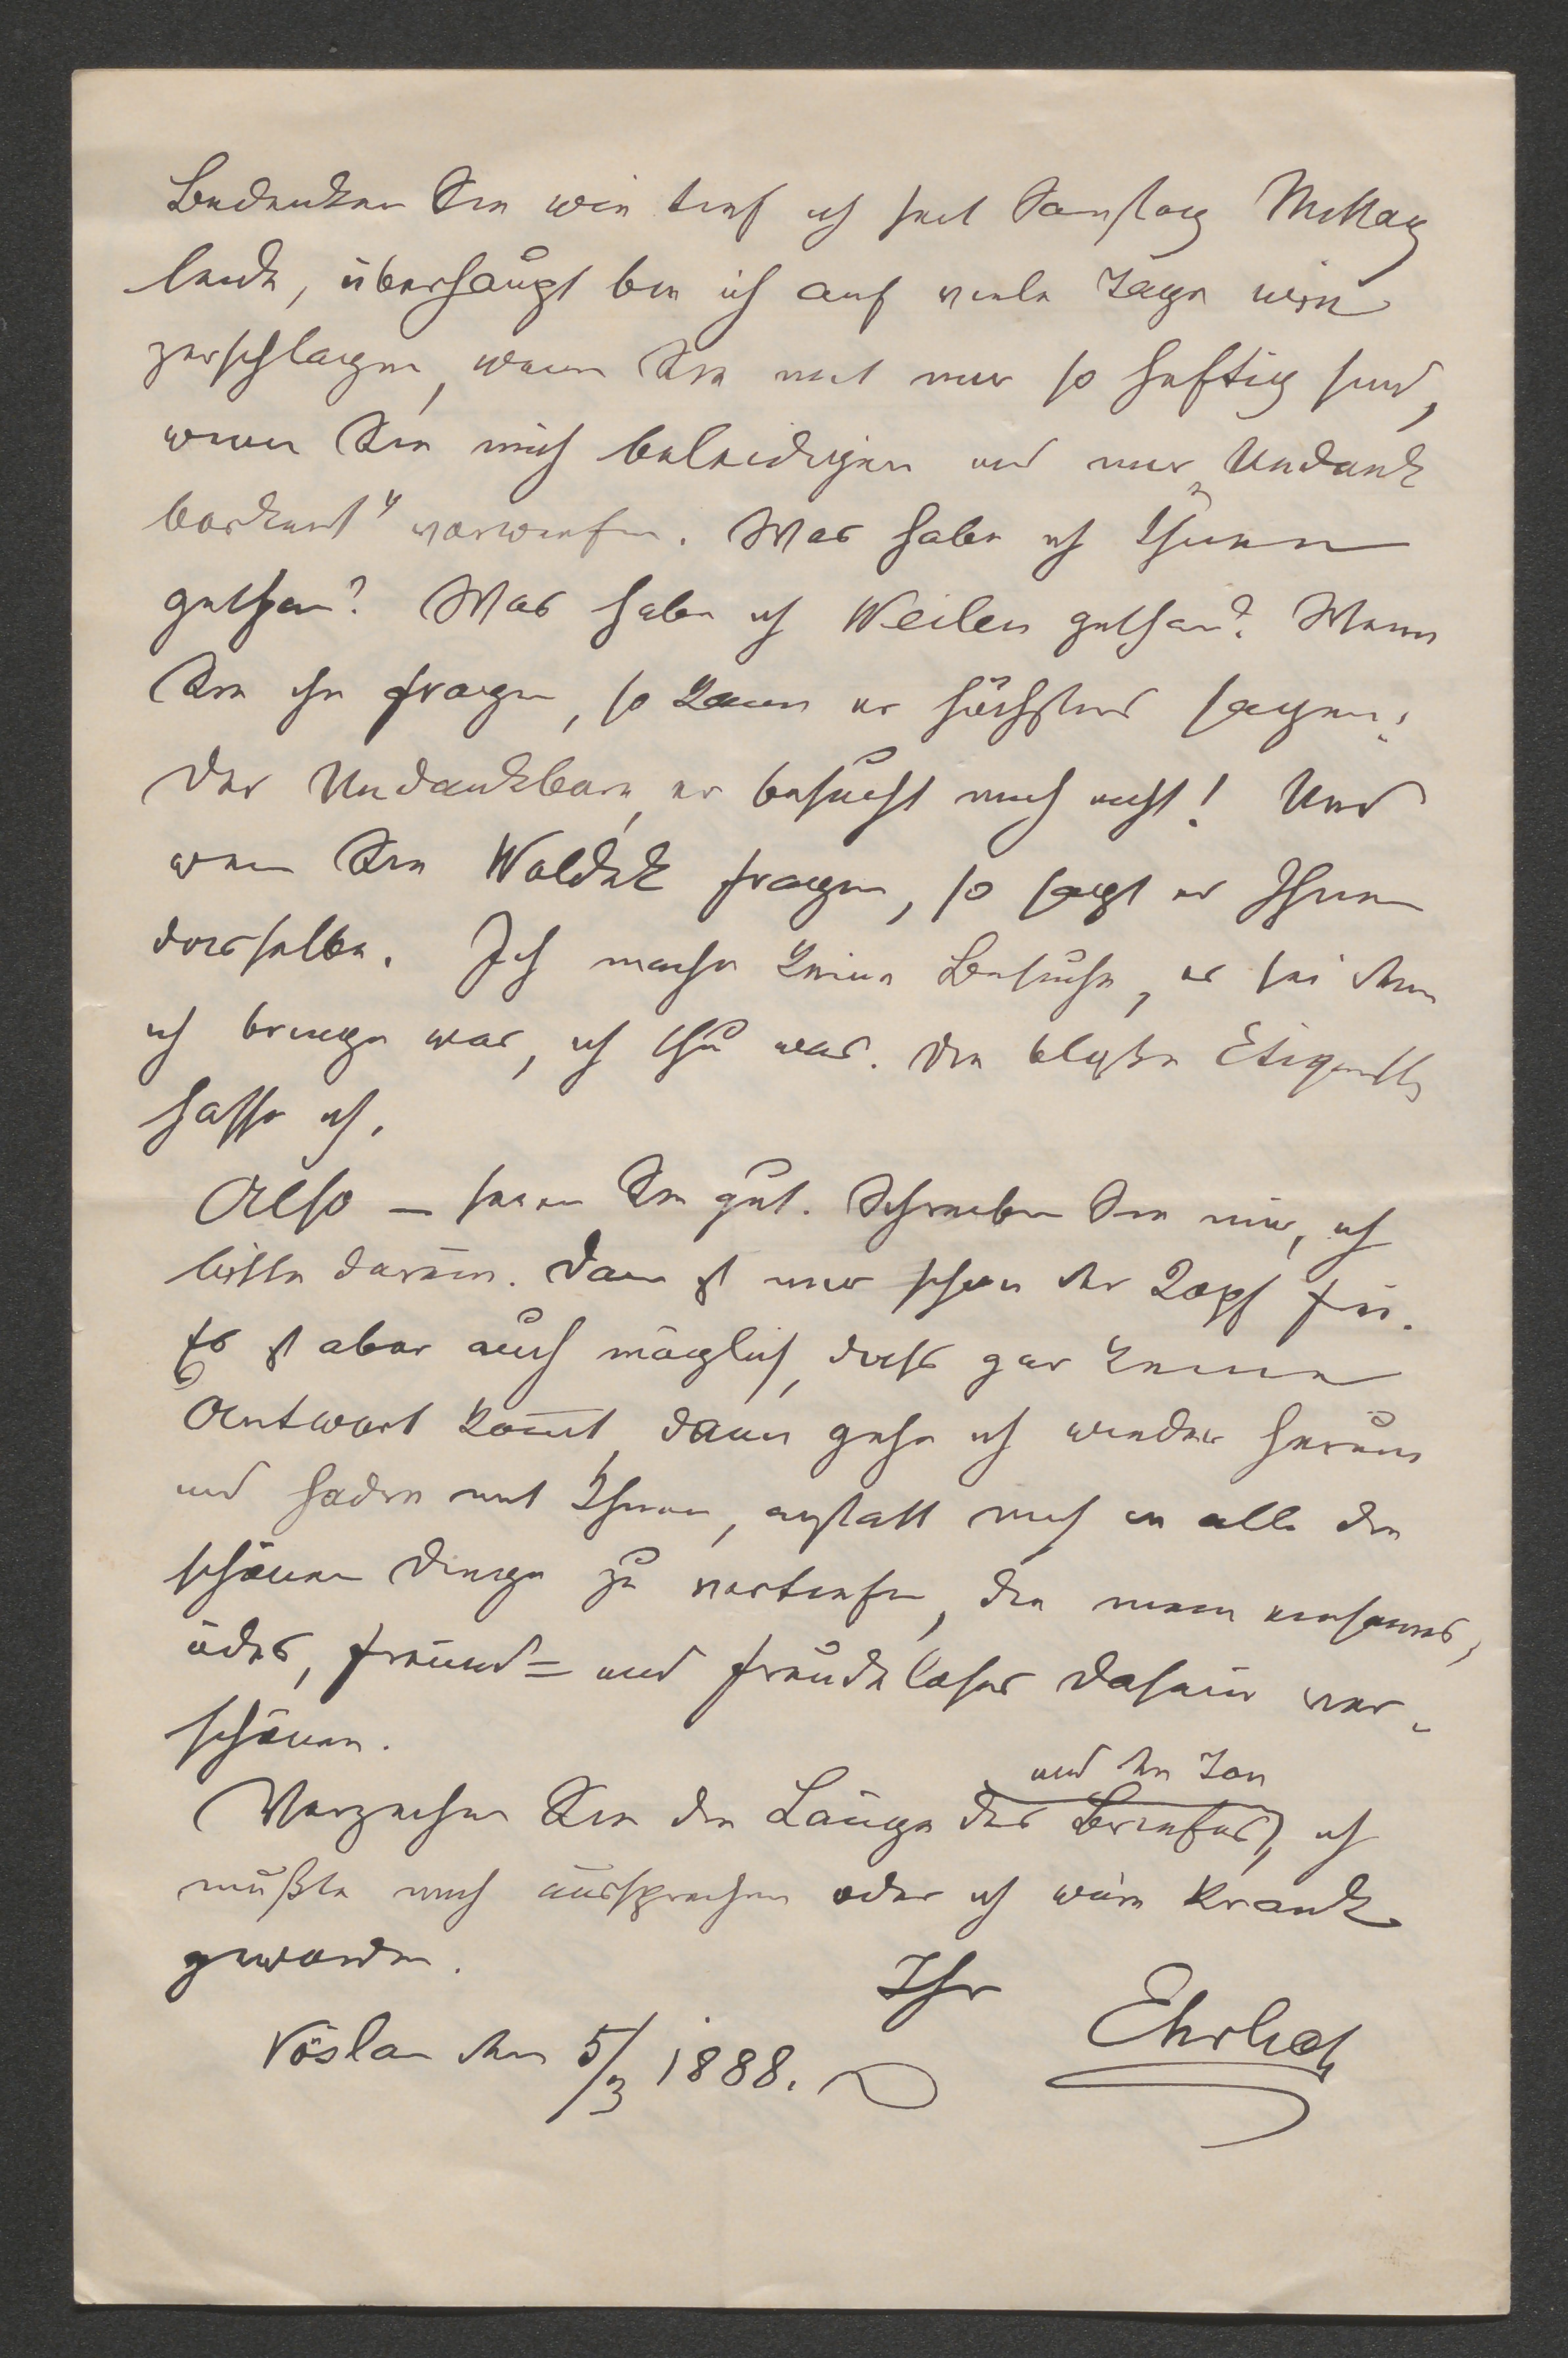 Bedenken Sie wie tief ich seit Samstag Mittag
leide, überhaupt bin ich auf viele Tage wie
zerschlagen, wenn Sie mit mir so heftig sind,
wenn Sie mich beleidigen und mir „Undank
barkeit" vorwerfen. Was habe ich Ihnen
gethan? Was habe ich Weilen gethan? Wenn
Sie ihn fragen, so kann er höchstens sagen:
Der Undankbare, er besucht mich nicht! Und
wenn Sie Waldek fragen, so sagt er Ihnen
dasselbe. Ich mache keine Besuche, es sei denn
ich bringe was, ich thu was. Die bloße Etiquette
hasse ich.
Also – seien Sie gut. Schreiben Sie mir, ich
bitte darum. Dann ist mir schon der Kopf frei.
Es ist aber auch möglich, dass gar keine
Antwort kom̅t, dann gehe ich wieder herum
und hadre mit Ihnen, anstatt mich in alle die
schönen Dinge zu vertiefen, die mein einsames,
ödes, freund= und freudeloses Dasein ver-
schönen.
und den Ton
Verzeihen Sie die Länge des Briefes, ich
mußte mich aussprechen oder ich wäre krank
geworden.
Ihr
Ehrlich
Vöslau den 5/3 1888.